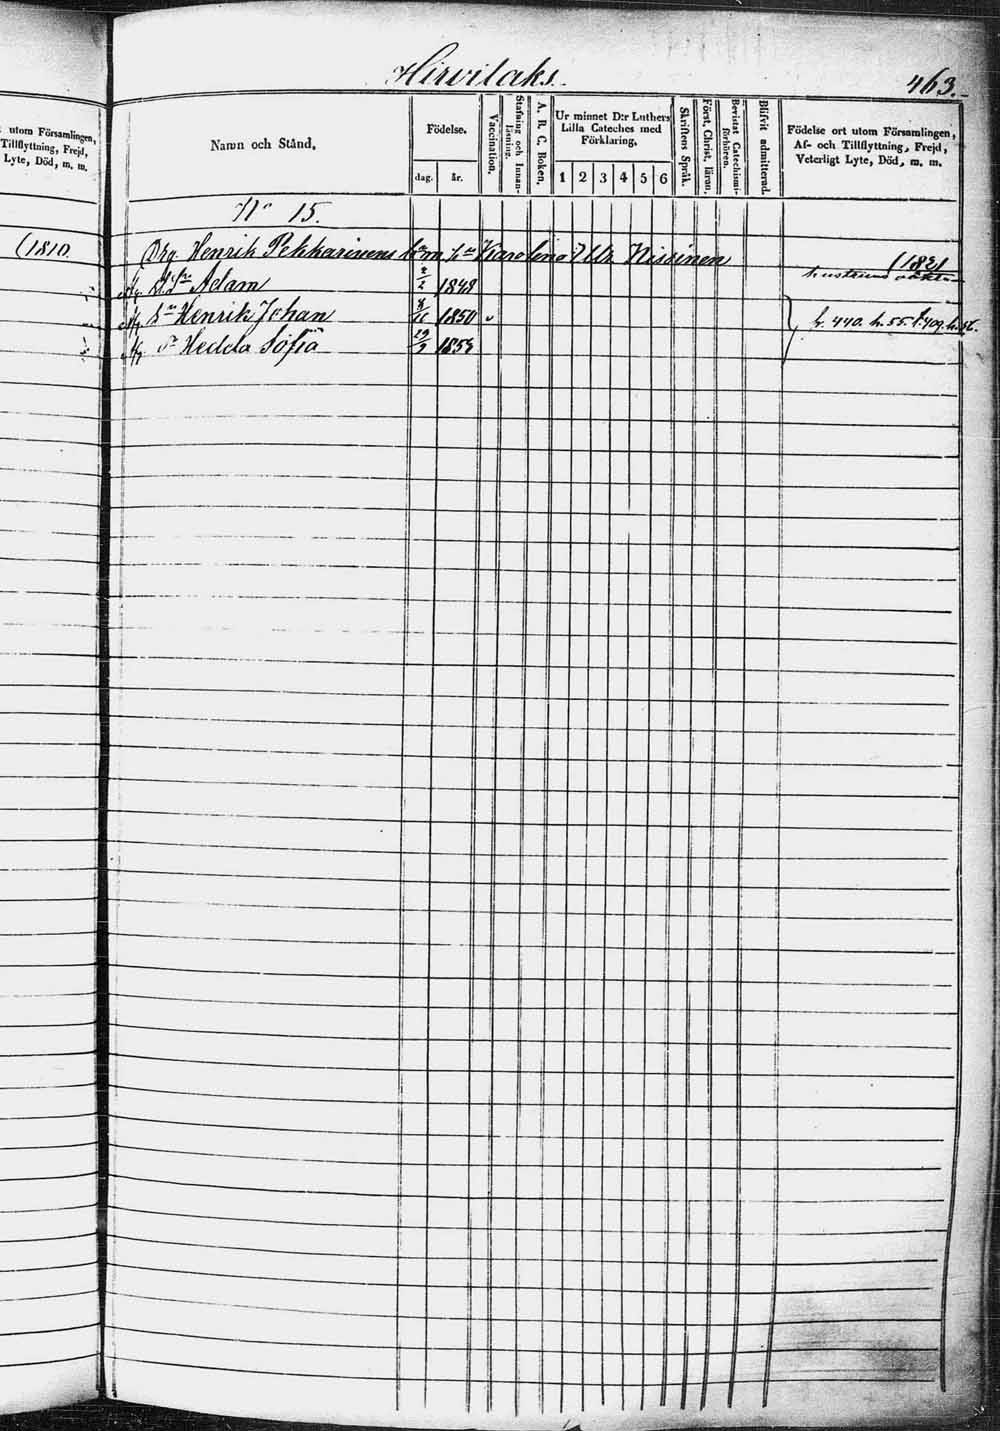 Hirvilaks.
463.
utom Församlingen,
Tillflyttning, Frejd,
Lyte, Död, m. m.
Namn och Stånd.
Födelse.
dag. år.
Vaccination.
Stafning och Innan-
läsning.
A. B. C. Boken.
Ur minnet D:r Luthers
Lilla Cateches med
Förklaring.
1 2 3 4 5 6
Skriftens Språk.
Först. Christ. läran.
Bevistat Catechismi-
förhören.
Blifvit admitterad.
Födelse ort utom Församlingen,
Af- och Tillflyttning, Frejd,
Veterligt Lyte, Död, m. m.
No 15.
(1810.
Drg. Henrik Pekkarinens barn, Karolina Ulr. Nissinen
(1821
hustruns
Adam 2/2 1848
Sn Henrik Johan 8/11 1850
f. 440. h. 55. f. 409. h.
Hedda Sofia 29/9 1853